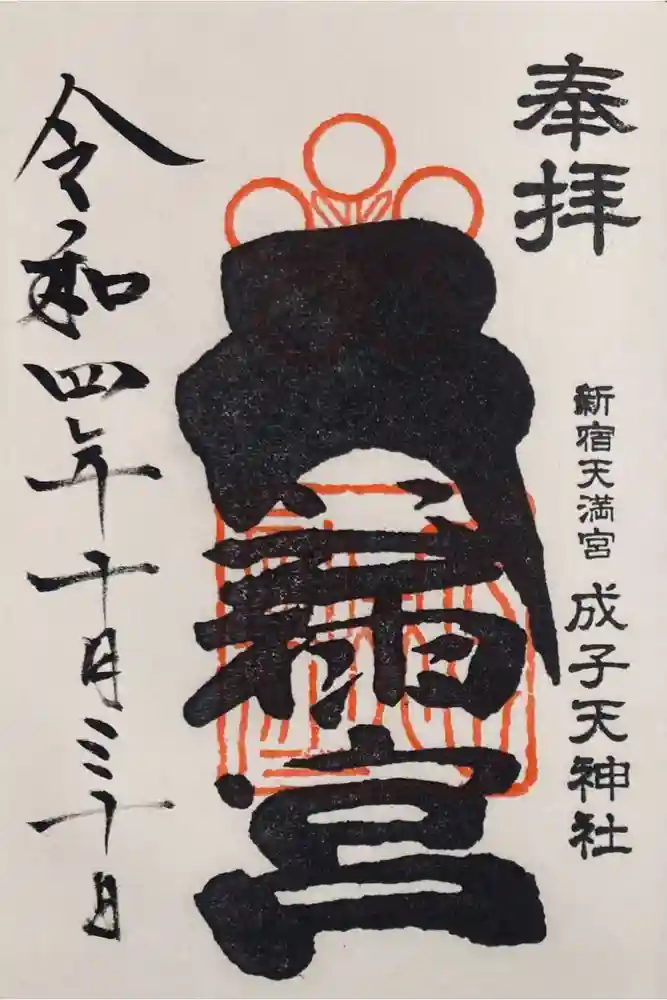 奉拝
新宿天満宮 成子天神社
宮
令和四年十月三十日